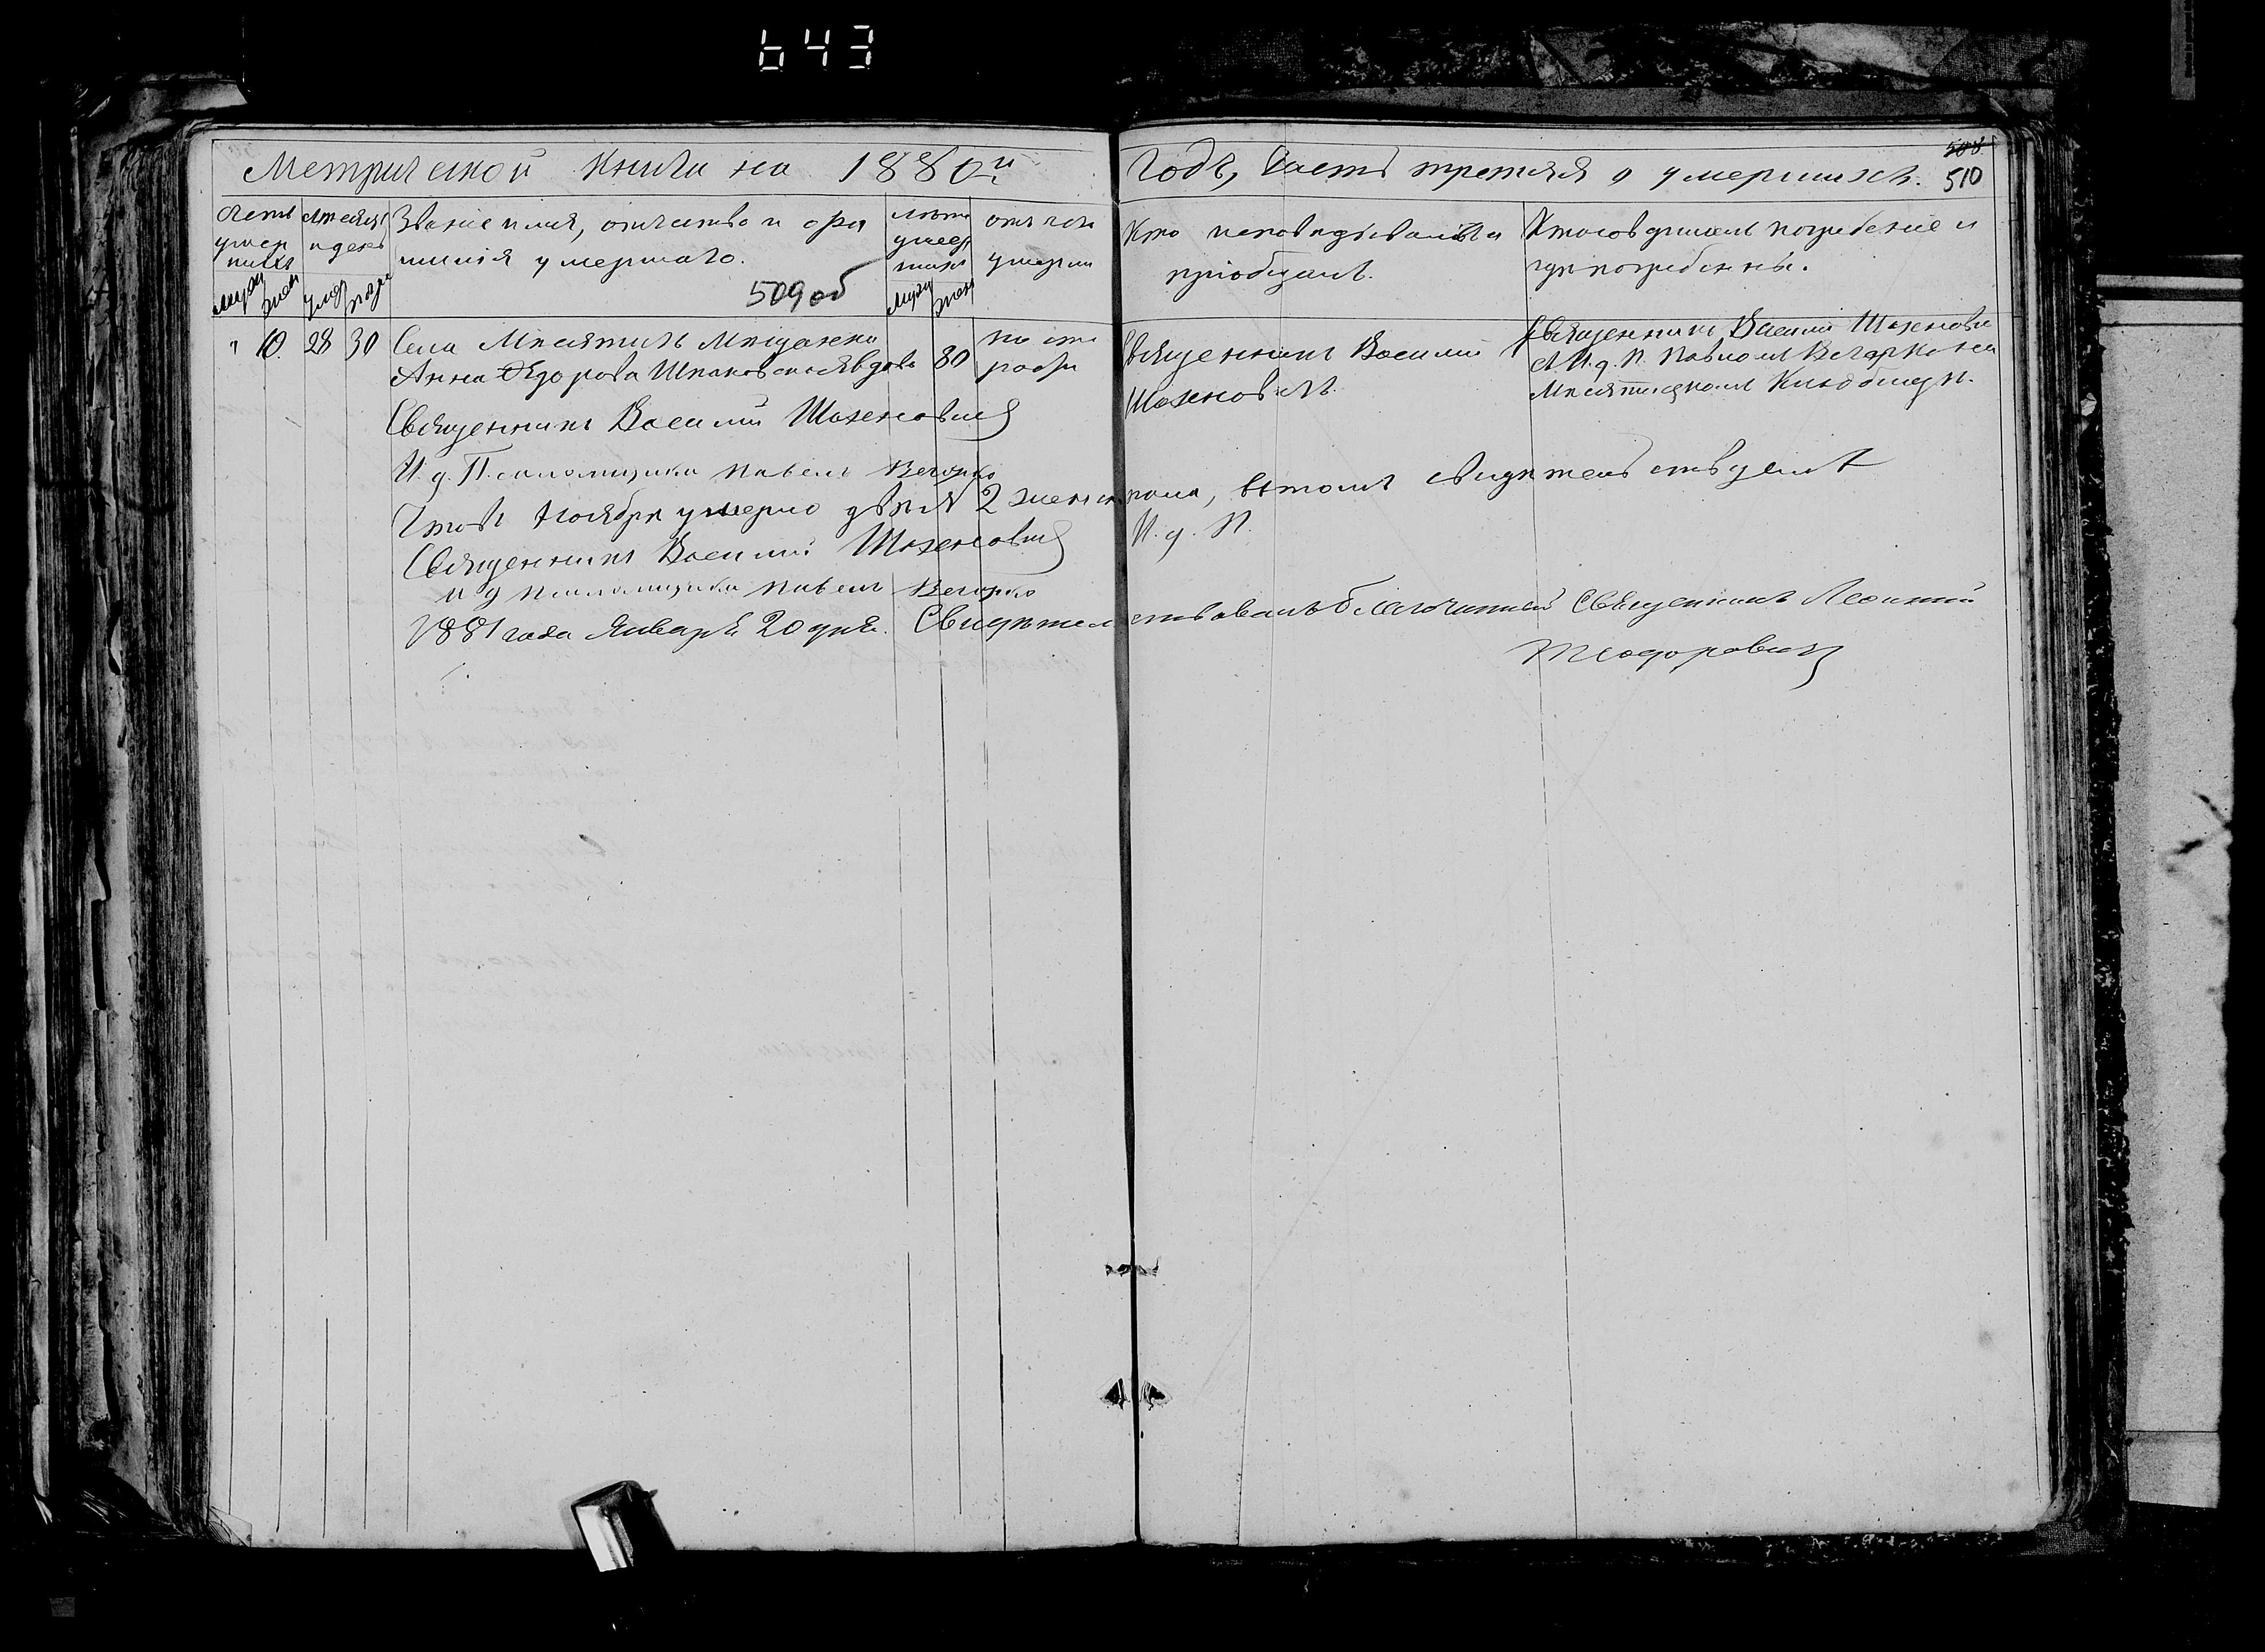 643
Метрической книги на 1880й годъ, Часть третяя о умершихъ.
508
510
Счетъ умер шихъ
Мужс Женс
Мѣсяцъ и день
умер погре
Званіе имя, отчество и фа
милія умершаго.
509 об
лѣта умер шихъ
Мужс Женс
отъ чего
умерли
Кто исповѣдывалъ и
пріобщалъ.
Кто совершалъ погребеніе и
гдѣ погребены.
" 10. 28 30 Села Мпсятичъ мѣщанка
Анна Федорова Шпаковская вдова
80
по ста
рости
Священникъ Василій
Шахновичъ.
Священникъ Василій Шахнович
с И. д. П. Павломъ Вечорко на
кладбищѣ.
Священникъ Василій Шахновичъ
И. д. Псаломщика Павелъ Вечорко
Что въ Ноябрѣ умерло двѣ 2 женска пола, въ томъ свидѣтельствуемъ
Священникъ Василій Шахновичъ И. д. П.
и д псаломщика Павелъ Вечорко
1881 года Января 20 дня. Свидѣтельствовалъ благочинный Священникъ Леонтій
Теодоровичъ